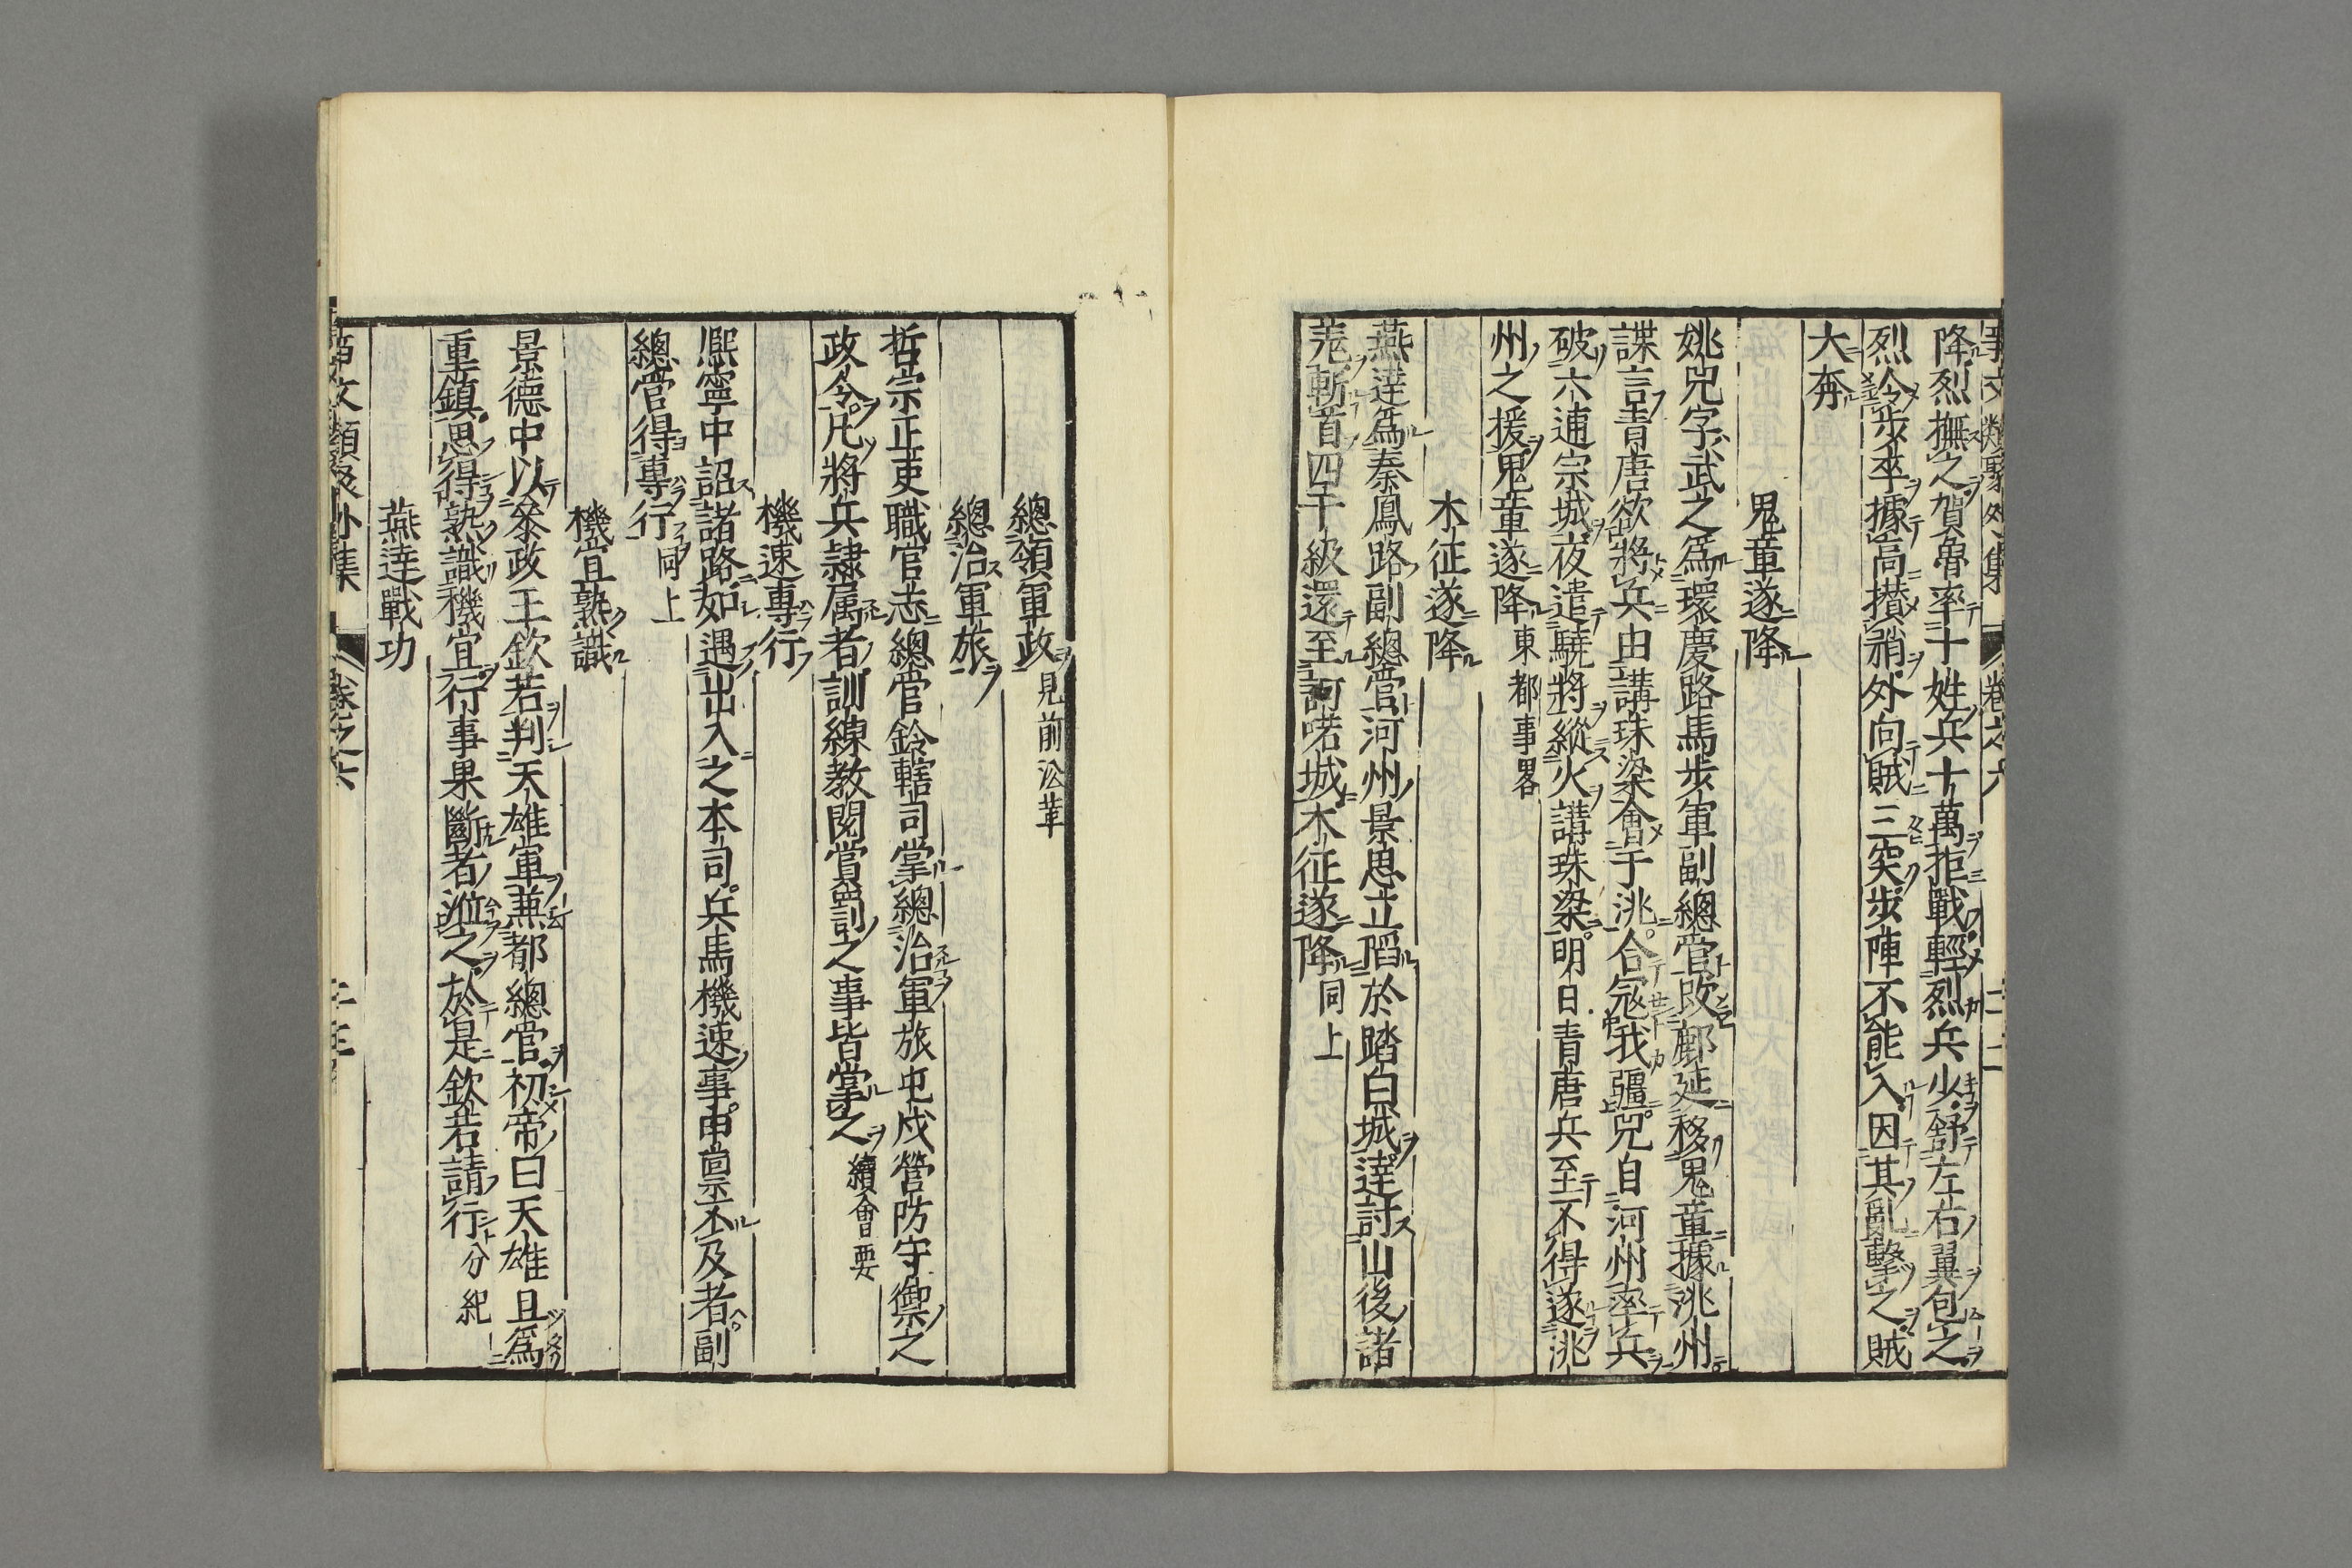 事文類聚外集 卷之六 二十二
降烈撫之賀魯率十姓兵十萬拒戰輕烈兵少舒左右翼包之
烈令步卒據高攅矟外向賊三突步陣不能入因其亂擊之賊
大奔
鬼童遂降
姚兕字武之爲環慶路馬步軍副總管改鄜延移鬼童據洮州
諜言青唐欲將兵由講珠梁會于洮合寇我疆兕自河州率兵
破六逋宗城夜遣驍將縱火講珠梁明日青唐兵至不得遂洮
州之援鬼童遂降東都事畧
木征遂降
燕達爲秦鳳路副總管河州景思立䧟於踏白城達討山後諸
羌斬首四千級還至訶喏城木征遂降同上
總領軍政見前沿革
總治軍旅
哲宗正吏職官志總管鈴轄司掌總治軍旅屯戍營防守禦之
政令凡將兵隷属者訓練教閱賞罰之事皆掌之續會要
機速專行
熈寧中詔諸路如遇出入之本司兵馬機速事申禀不及者副
總管得專行同上
機宜熟識
景德中以叅政王欽若判天雄軍兼都總管初帝曰天雄且爲
重鎮思得熟識機宜行事果斷者涖之於是欽若請行分紀
燕達戰功
事文類聚外集 卷之六